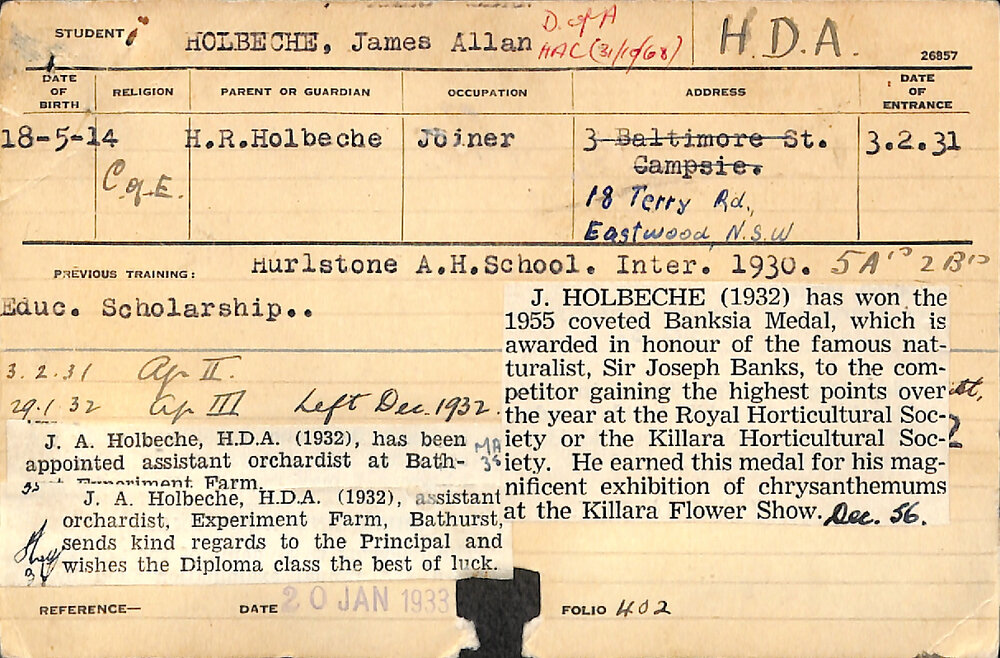 STUDENT HOLBECHE, James Allan D. of A H.D.A.
HAC (31/10/68)
26857
DATE OF BIRTH RELIGION PARENT OR GUARDIAN OCCUPATION ADDRESS DATE OF ENTRANCE
18-5-14 H.R.Holbeche Joiner 3 Baltimore St. 3.2.31
C of E. Campsie.
18 Terry Rd.,
Eastwood, N.S.W
PREVIOUS TRAINING: Hurlstone A.H.School. Inter. 1930. 5A's 2B's
Educ. Scholarship..
3.2.31 Ag II.
29.1.32 Ag III Left Dec. 1932.
J. A. Holbeche, H.D.A. (1932), has been
appointed assistant orchardist at Bath-
Experiment Farm.
J. A. Holbeche, H.D.A. (1932), assistant
orchardist, Experiment Farm, Bathurst,
sends kind regards to the Principal and
wishes the Diploma class the best of luck.
J. HOLBECHE (1932) has won the
1955 coveted Banksia Medal, which is
awarded in honour of the famous nat-
turalist, Sir Joseph Banks, to the com-
petitor gaining the highest points over
the year at the Royal Horticultural Soc-
iety or the Killara Horticultural Soc-
iety. He earned this medal for his mag-
nificent exhibition of chrysanthemums
at the Killara Flower Show. Dec. 56.
REFERENCE— DATE 20 JAN 1933 FOLIO 402